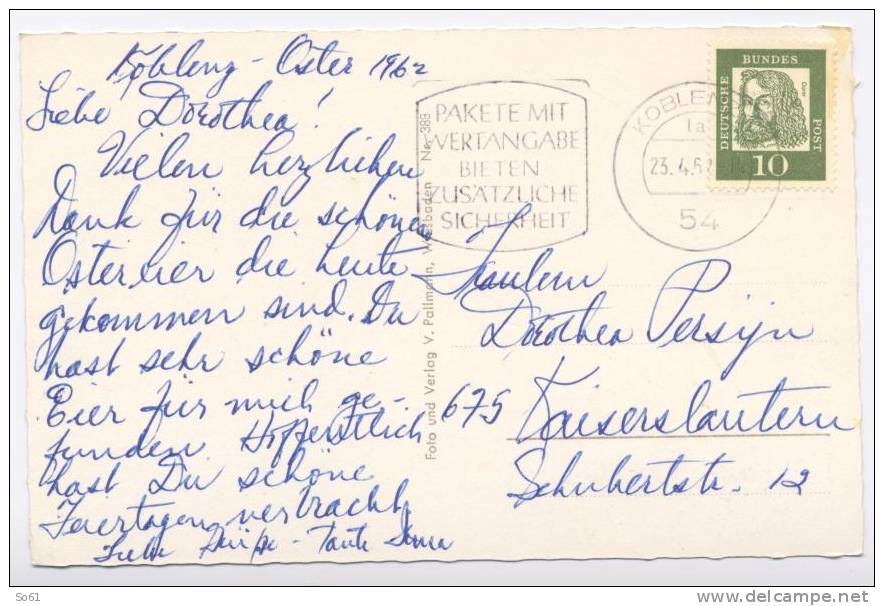 Koblenz - Oster 1962
Liebe Dorothea!
Vielen herzlichen
Dank für die schönen
Ostereier die heute
gekommen sind. Du
hast sehr schöne
Eier für mich ge-
funden. Hoffentlich
hast Du schöne
Feiertagen verbracht,
Liebe Grüße - Tante
PAKETE MIT
WERTANGABE
BIETEN
ZUSÄTZLICHE
SICHERHEIT
KOBLENZ
1a
23.4.62
54
DEUTSCHE
BUNDES
POST
Dürer
10
Foto und Verlag V. Pallmann, Wiesbaden Nr. 388
Fräulein
Dorothea Persijn
675 Kaiserslautern
Schubertstr. 12
So61
delcampe.net